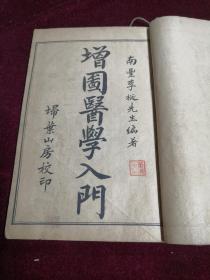 南豐李梴先生編著
增圖醫學入門
掃葉山房校印